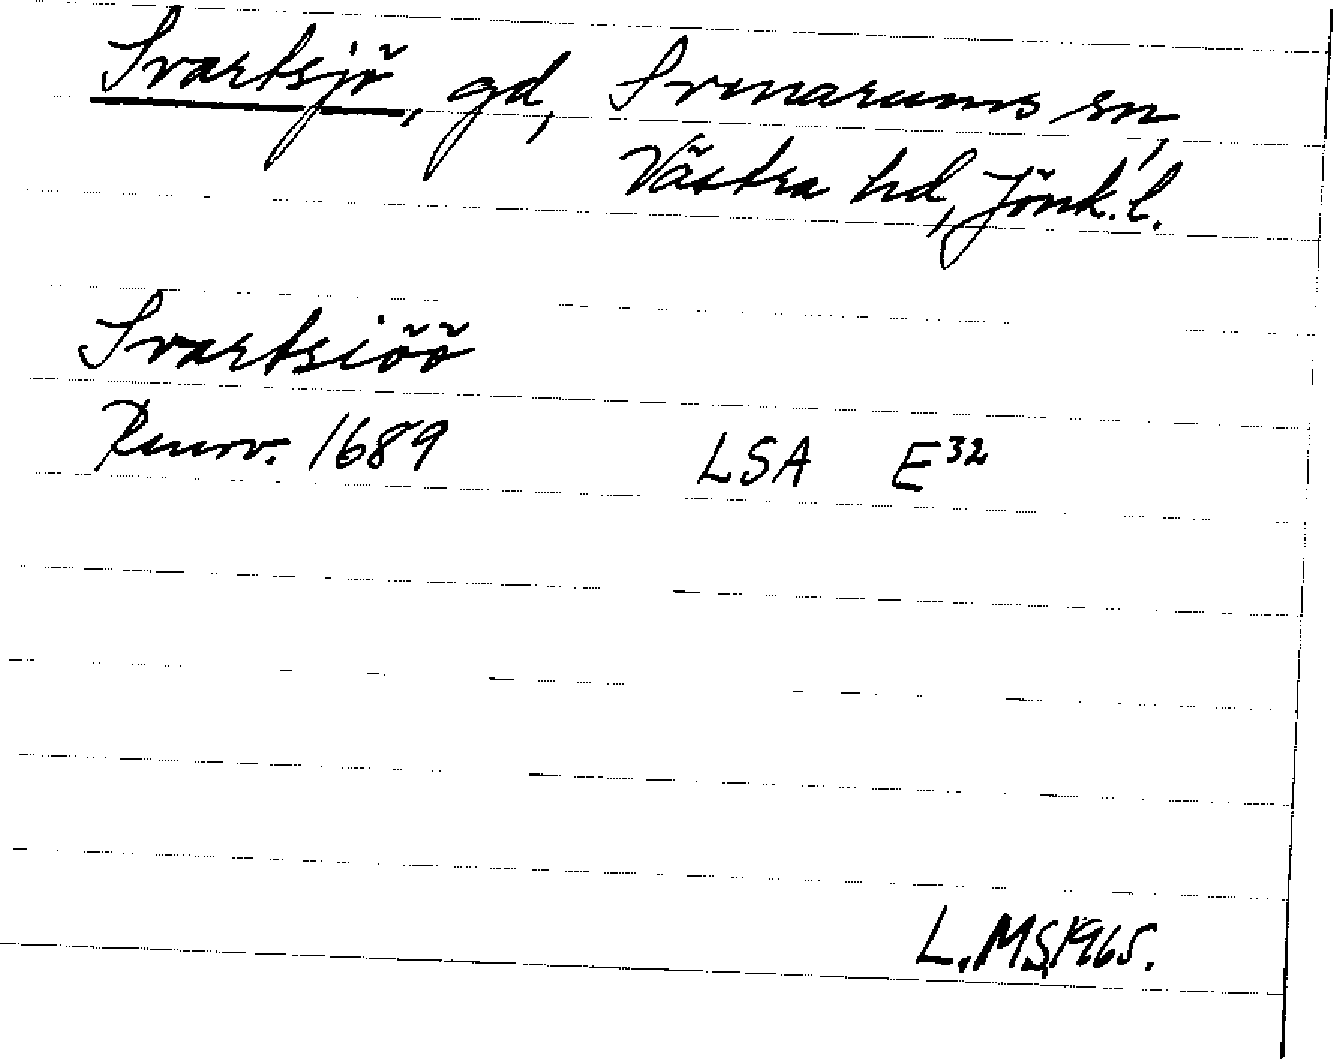 Svartsjö, gd, Svenarums sn,
Västra hd, Jönk. l.
Svartsiöö
Renov. 1689 LSA E32
L.MS 1965.